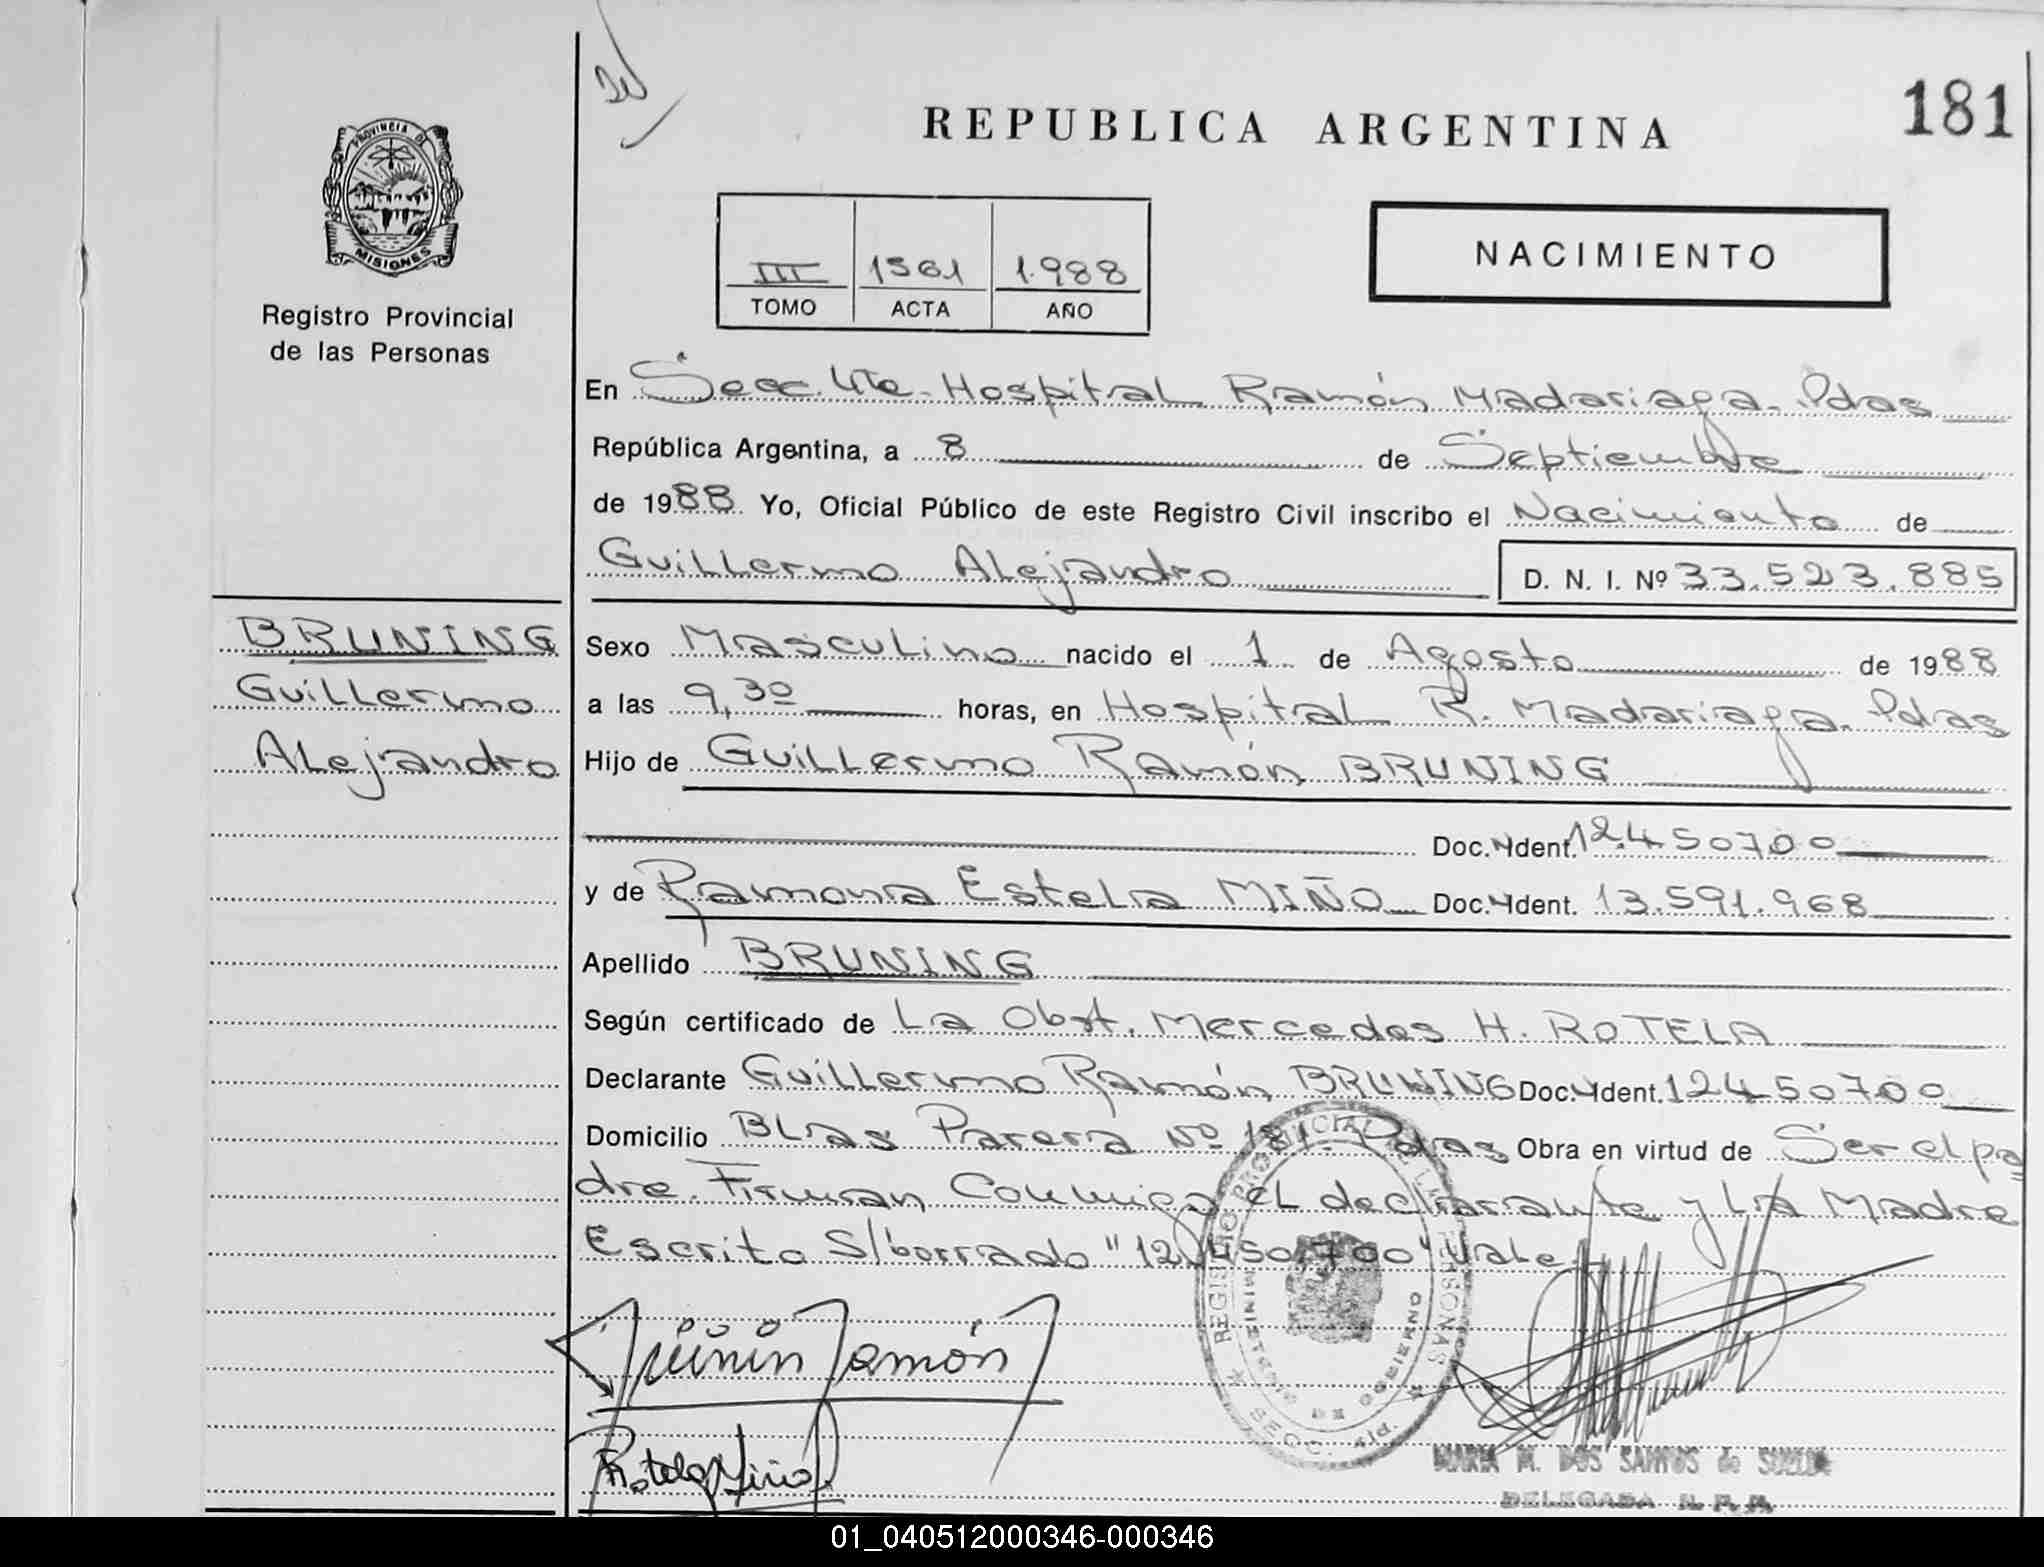 REPUBLICA ARGENTINA
181
PROVINCIA DE
MISIONES
Registro Provincial
de las Personas
NACIMIENTO
III 1561 1.988
TOMO ACTA AÑO
En Secc. 4ta. Hospital Ramón Madariaga. Pdas
República Argentina, a 8 de Septiembre
de 1988 Yo, Oficial Público de este Registro Civil inscribo el Nacimiento de
Guillermo Alejandro D. N. I. Nº 33.523.885
BRUNING
Guillermo
Alejandro
Sexo Masculino nacido el 1 de Agosto de 1988
a las 9,30 horas, en Hospital R. Madariaga. Pdas
Hijo de Guillermo Ramón BRUNING
Doc. Ydent. 12.450700
y de Ramona Estela MIÑO Doc. Ydent. 13.591.968
Apellido BRUNING
Según certificado de La Obst. Mercedes H. ROTELA
Declarante Guillermo Ramón BRUNING Doc. Ydent. 12450700
Domicilio Blas Parera Nº 181. Pdas Obra en virtud de Ser el pa
dre. Firman Conmigo el declarante y La Madre
Escrito S/borrado "12.450.700" Vale
REGISTRO PROVINCIAL DE LAS PERSONAS
MINISTERIO DE GOBIERNO
MARIA M. DOS SANTOS de
DELEGADA R. P. P.
01_040512000346-000346